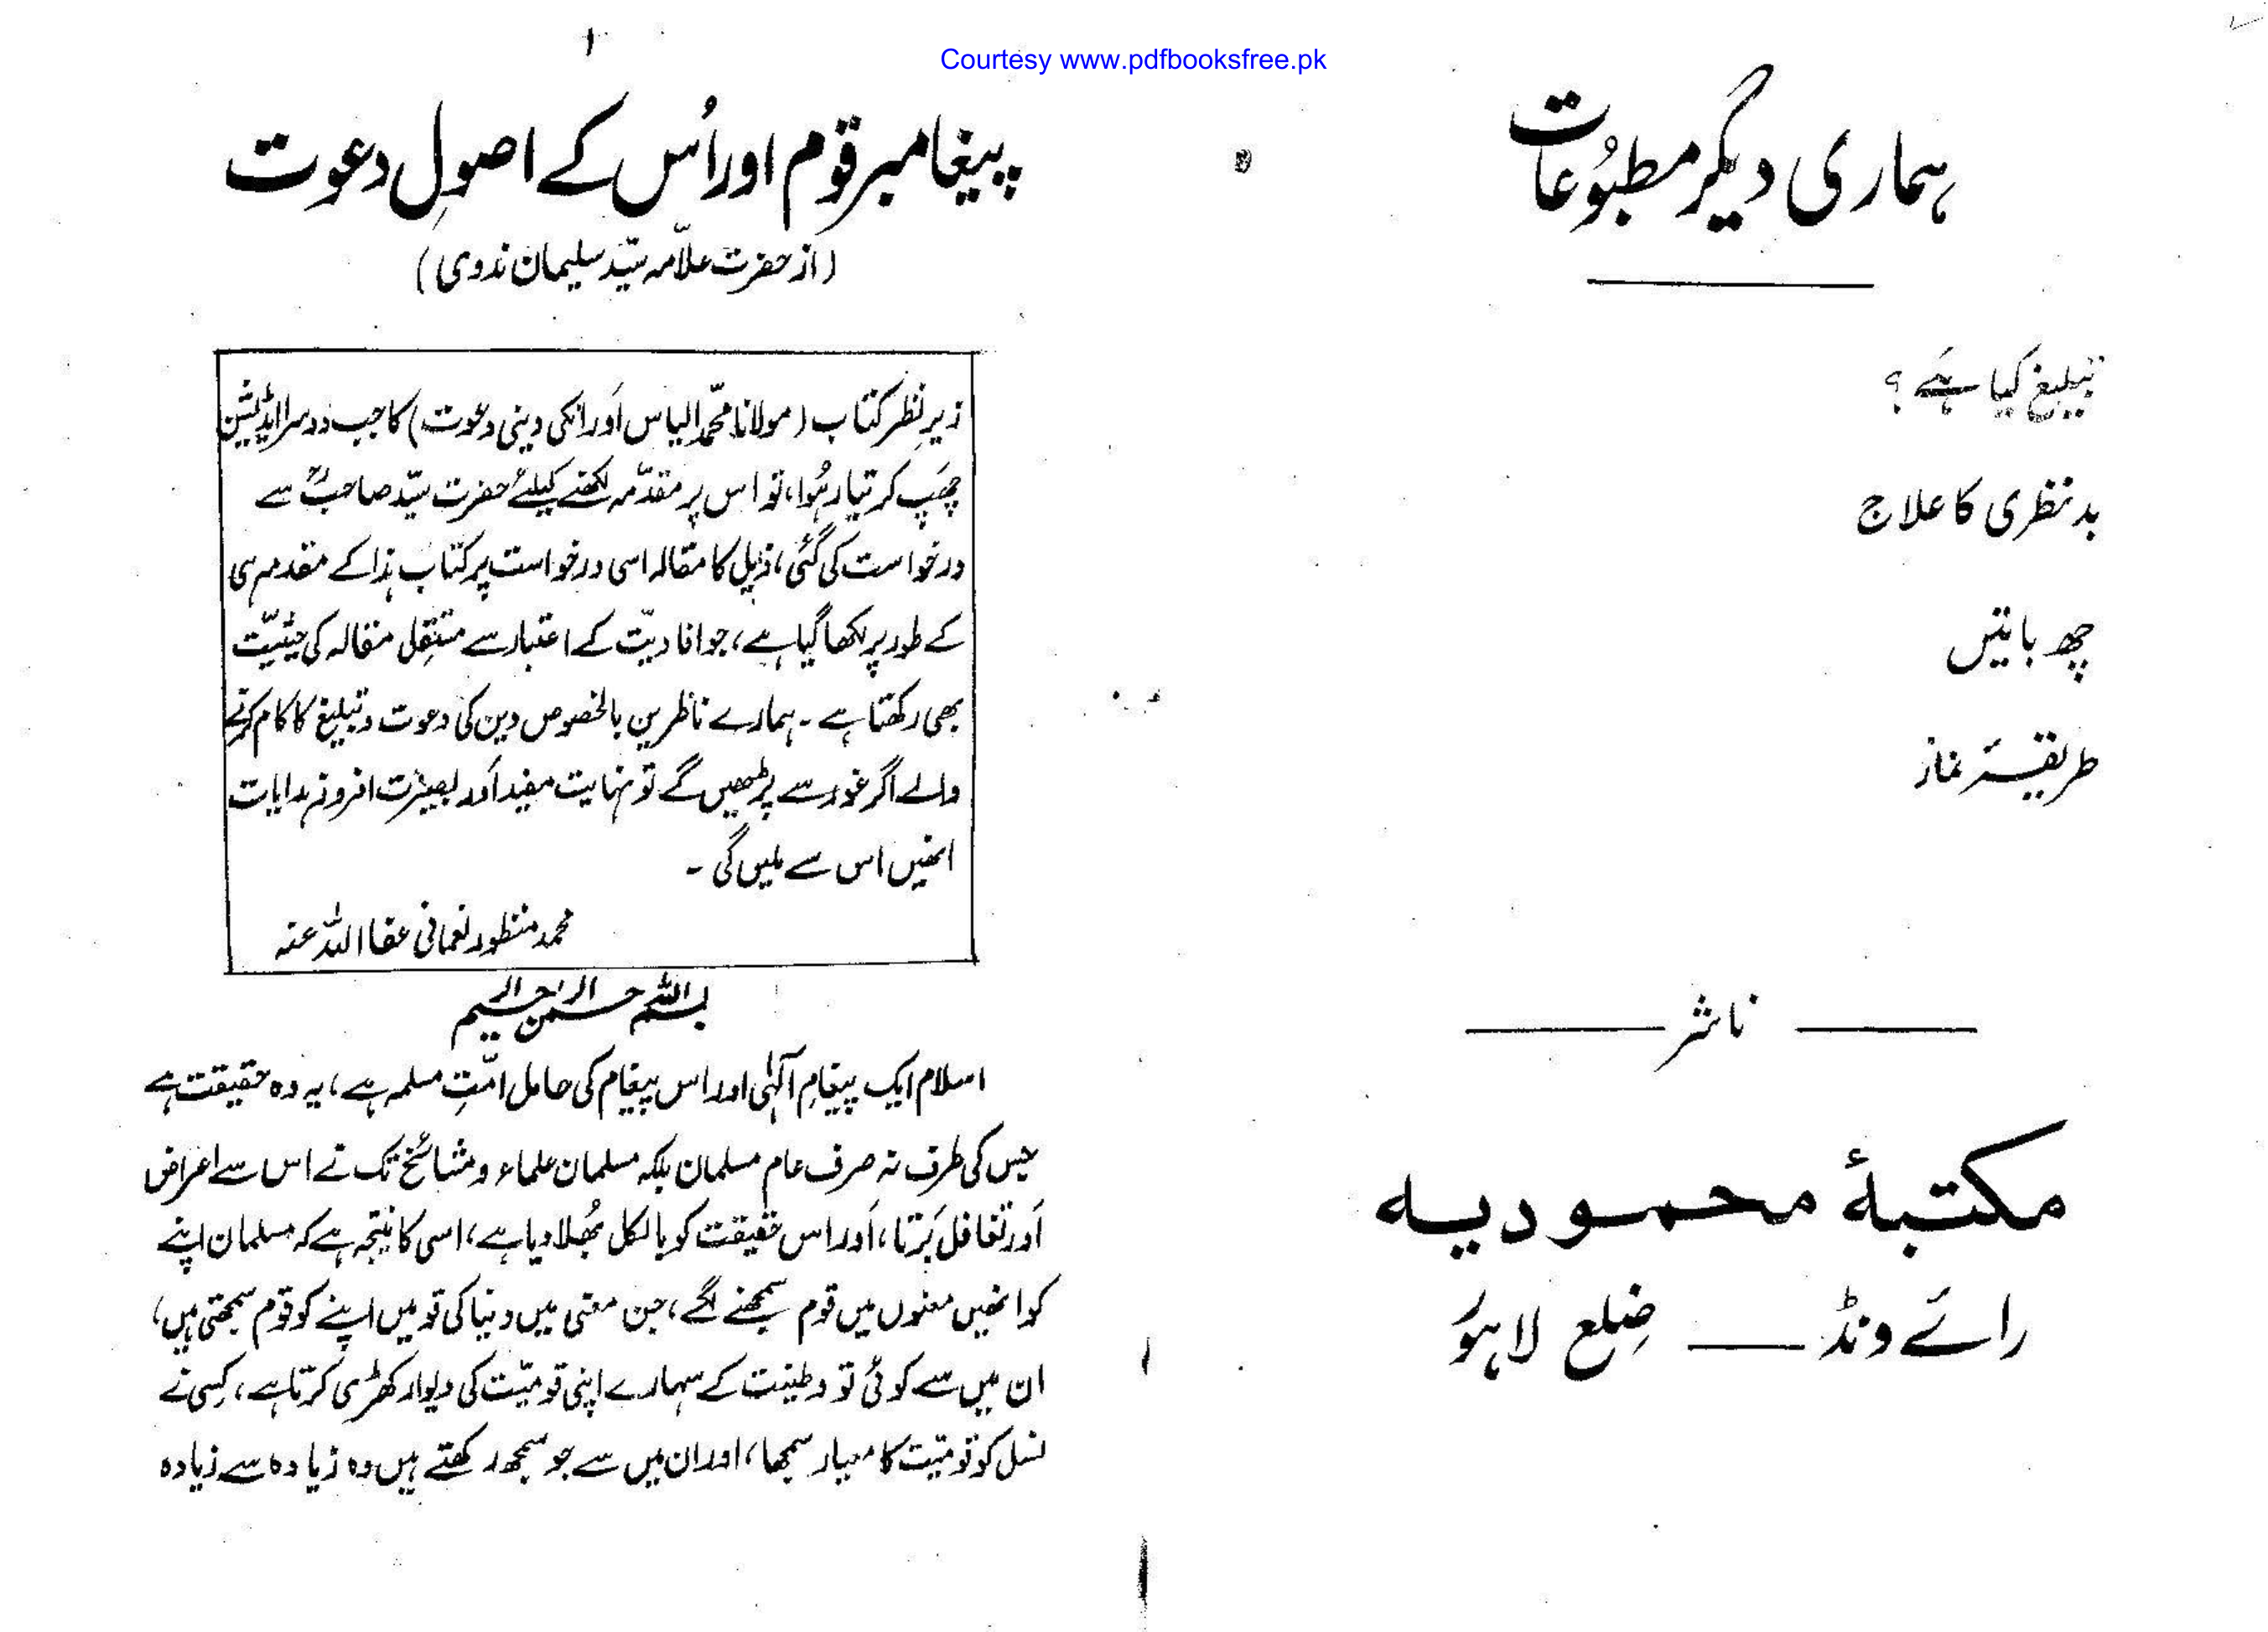 Courtesy www.pdfbooksfree.pk
ہماری دیگر مطبُوعات
تبلیغ کیا ہَے ؟
بدنظری کا علاج
چھ باتیں
طریقۂ نماز
ناشر
مکتبۂ محمودیہ
رائے ونڈ — ضِلع لاہوُر
۱
پیغامبر قوم اور اُس کے اصولِ دعوت
(از حضرت علاّمہ سیّد سلیمان ندوی)
زیرِ نظر کتاب (مولانا محمّد الیاس اَور انکی دینی دعوت) کا جب دوسرا ایڈیشن
چھَپ کر تیار ہُوا، تو اس پر مقدّمہ لکھنے کیلئے حضرت سیّد صاحبؒ سے
درخواست کی گئی، ذیل کا مقالہ اسی درخواست پر کتاب ہذا کے مقدمہ ہی
کے طور پر لکھا گیا ہے، جو افادیّت کے اعتبار سے مستقِل مقالہ کی حیثیّت
بھی رکھتا ہے ۔ ہمارے ناظرین بالخصوص دین کی دعوت و تبلیغ کا کام کرنے
والے اگر غور سے پڑھیں گے تو نہایت مفید اَور بصیرت افروز ہدایات
انھیں اس سے ملیں گی ۔
محمد منظور نعمانی عفا اللہ عنہ
بسم اللہ الرحمن الرحیم
اسلام ایک پیغامِ الٰہی اور اس پیغام کی حامل امّتِ مسلمہ ہے، یہ وہ حقیقت ہے
جس کی طرف نہ صرف عام مسلمان بلکہ مسلمان علماء و مشائخ تک نے اس سے اعراض
اَور تغافل بَرتا، اَور اس حقیقت کو بالکل بھُلا دیا ہے، اسی کا نتیجہ ہے کہ مسلمان اپنے
کو انھیں معنوں میں قوم سمجھنے لگے، جن معنی میں دنیا کی قومیں اپنے کو قوم سمجھتی ہیں،
ان میں سے کوئی تو وطنیت کے سہارے اپنی قومیّت کی دیوار کھڑی کرتا ہے، کِسی نے
نسل کو قومیّت کا معیار سمجھا، اور ان میں سے جو سمجھ رکھتے ہیں وہ زیادہ سے زیادہ